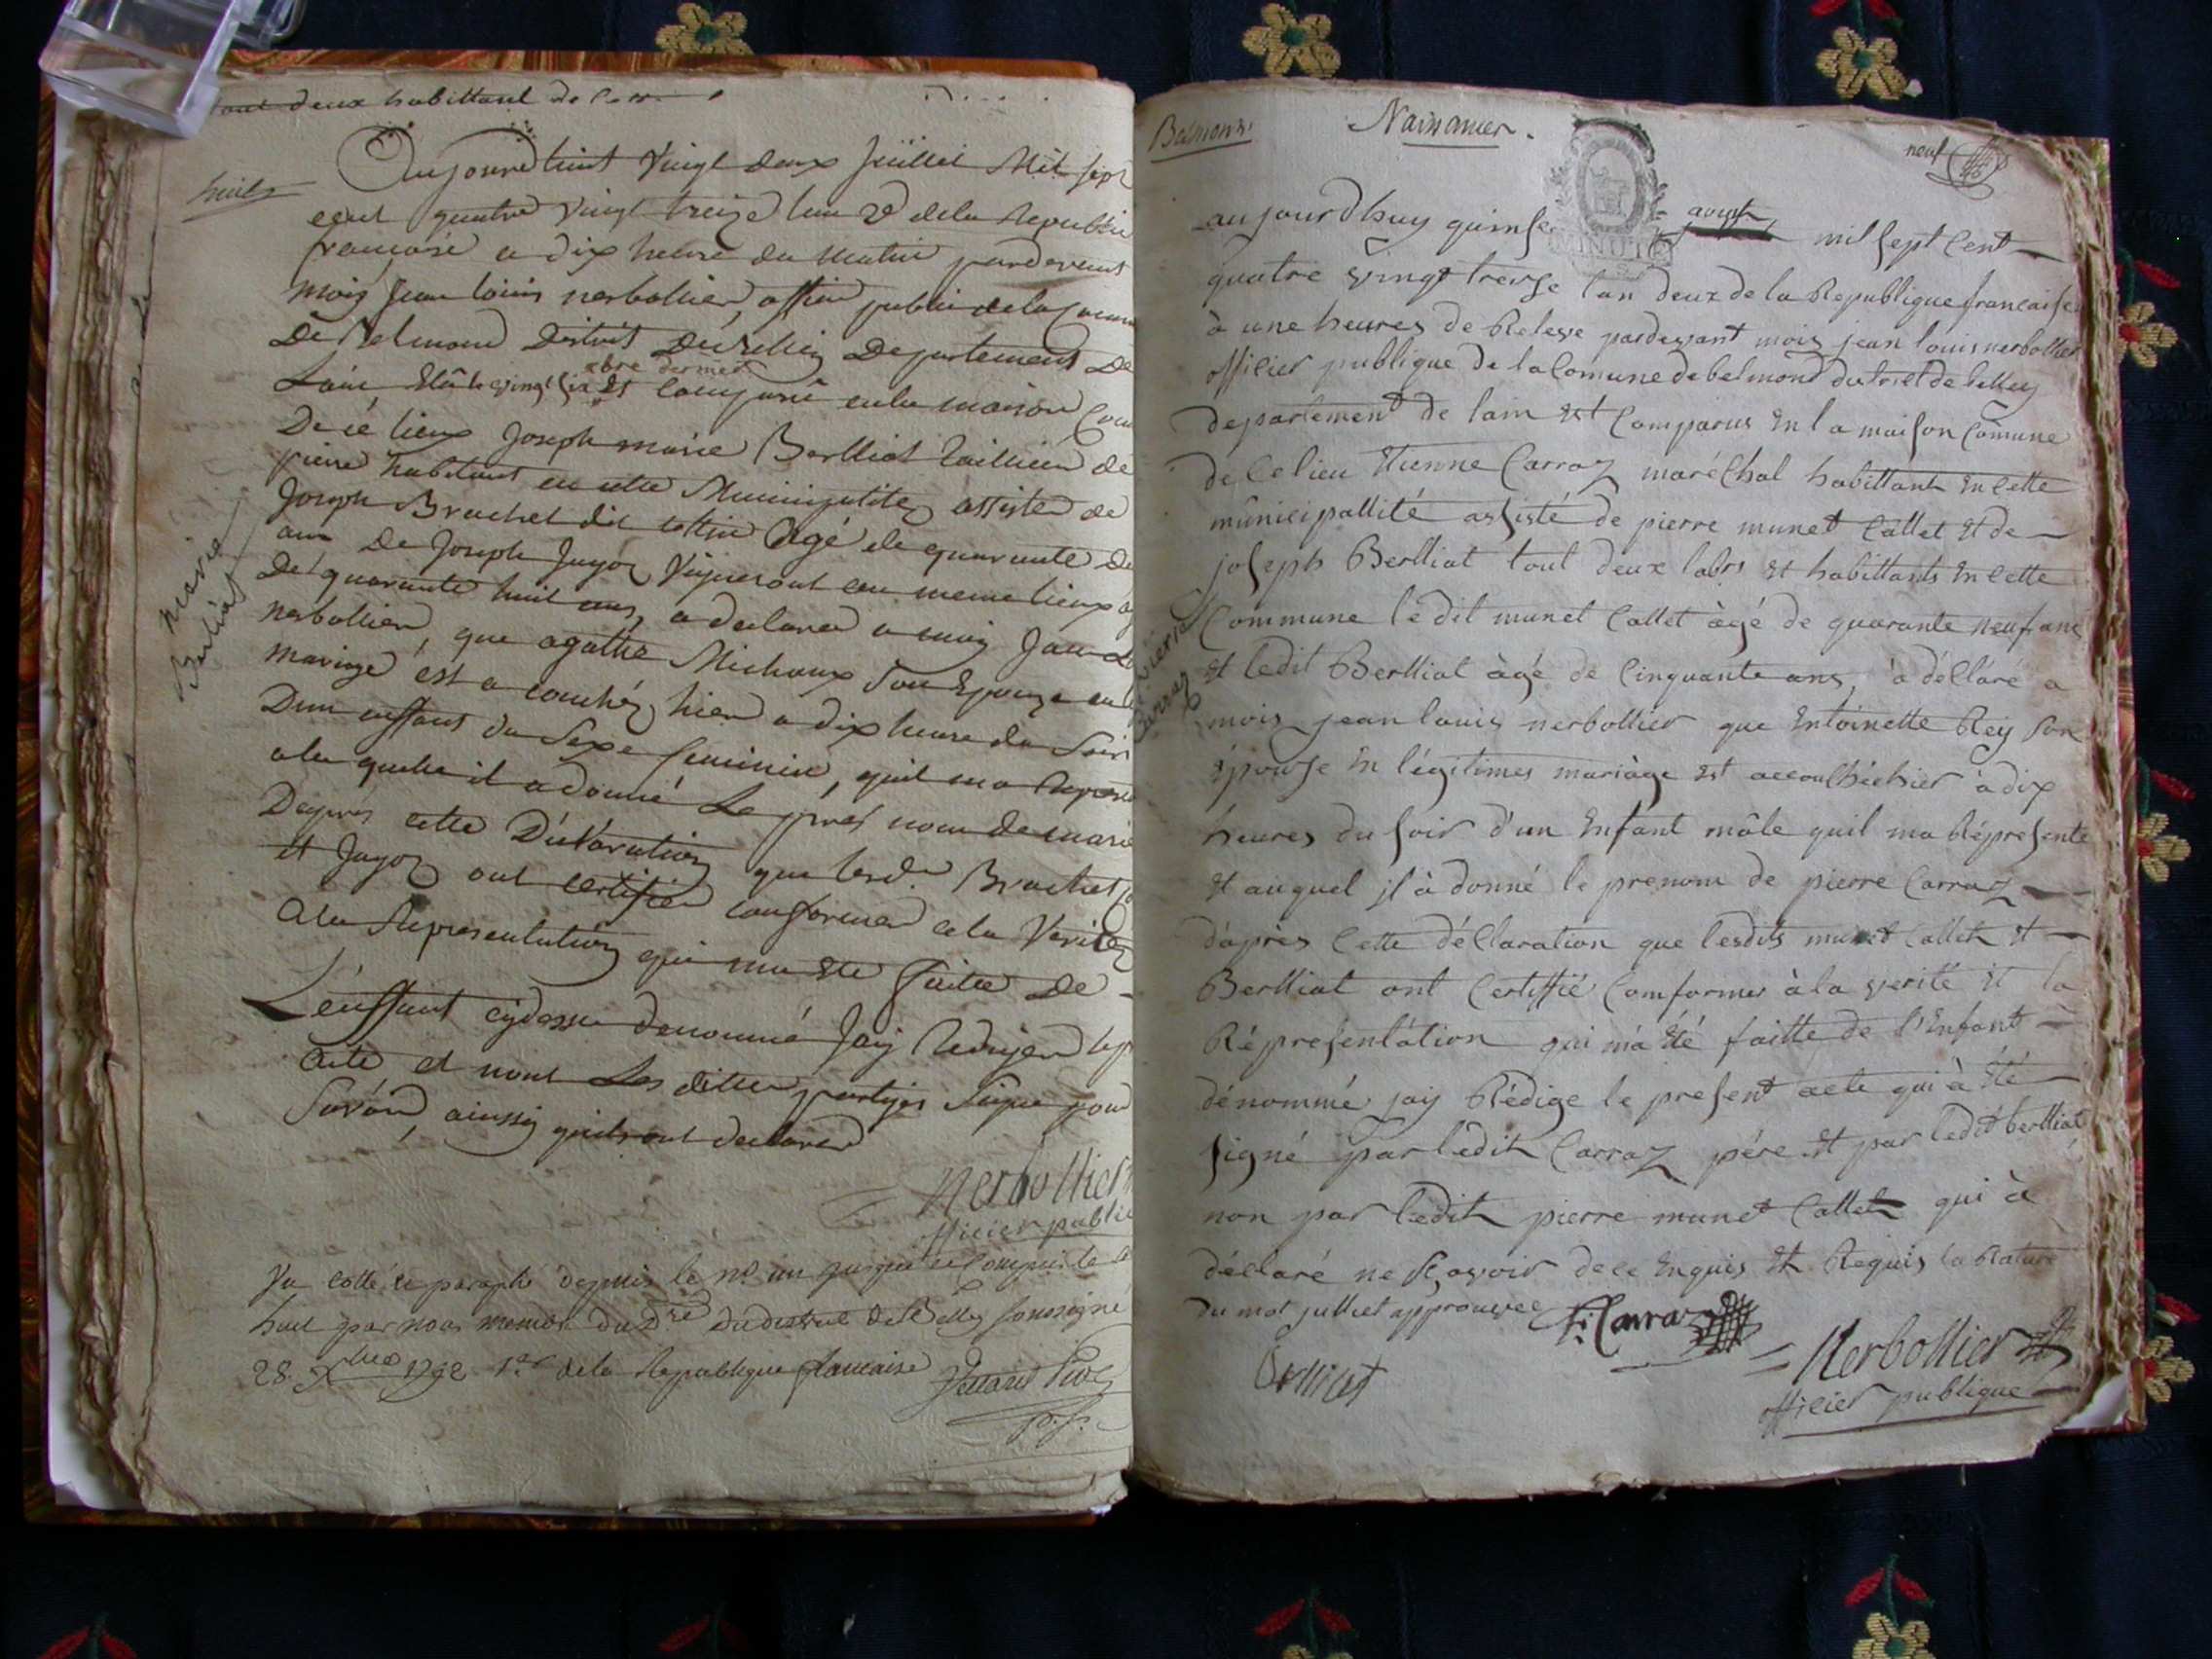 tout deux habittant de
huit
Aujourdhuit vingt deux Juillet Mil sept
cent quatre vingt treize lan 2e dela Republi
francaise a dix heure du matin pardevant
moiy Jean louis nerbollier, officier public de la Comun
De Belmond District De Belley Departement De
xbre dernier
Lain, Elû le vingt six Est comparu enla maison Com
De cé lieux Joseph marie Berlliat taillieur de
pierre habitant en cette Municipalitez assister de
Joseph Brachet dit age de quarante de
ans De Joseph Jugoz Vigneront au meme lieux
De quarante huit ans, a declarer a moiy Jean
nerbollier, que agathe Michaux Son Epouze en
mariage est a couchéz hier a dix heure du Soir
Dun enffant du Sexe feminin, quil ma Represe
ala quelle il a donné Le pres nom de marie
Dapres cette Déclaration que lesd. Brachet
et Jugoz ont certifier conformer a la Veritez
Ala Representation qui ma Ete faitte De
L'enffant cydessu denommé Jaiy Rediger le p
Acte et nont Les ditte partyes Signe pour
Savoir, ainssy quils ont declarer
marie
Berliat
Nerbollier
officier public
Vu cotté et paraphé depuis le no un jusques et Compris le
huit par nous membre du Dre Du district de Belley soussigné
28 Xbre 1792 1er de la Republique francaise
Belmont
Naissances.
neuf
MINUTE
aujourdhuy quinse aoust mil sept Cent
quatre vingt treize lan deux de la Republique francaise
à une heures de Releve pardevant mois jean louis nerbollier
officier publique de la Comune de belmond district de belley
departement de lain est Comparus en la maison Comune
de Ce lieu Etienne Carraz maréchal habittant en Cette
municipallité assisté de pierre munet Callet et de
joseph Berlliat tout deux labrs et habittants en Cette
Commune ledit munet Callet àgé de quarante neuf ans
et ledit Berlliat àgé de Cinquante ans, à déclaré a
mois jean louis nerbollier que Entoinette Rey son
épouse en légitimes mariàge est accouchée hier à dix
heures du soir d'un Enfant mâle quil ma Répresente
et auquel jl à donné le prenom de pierre Carraz
dàprès Cette déclaration que lesdits munet Callet et
Berlliat ont Certiffié Comformer à la verité et la
Répresentàtion qui má été faitte de l'Enfant
dénommé jaiy Rédige le present acte qui à été
signé par ledit Carraz pére et par ledit berlliat
non par ledit pierre munet Callet qui à
déclaré ne sçavoir de ce Enquis et Requis la Rature
du mot julliet approuvee
pierre
Carraz
Carraz
Berlliat
Nerbollier
officier publique